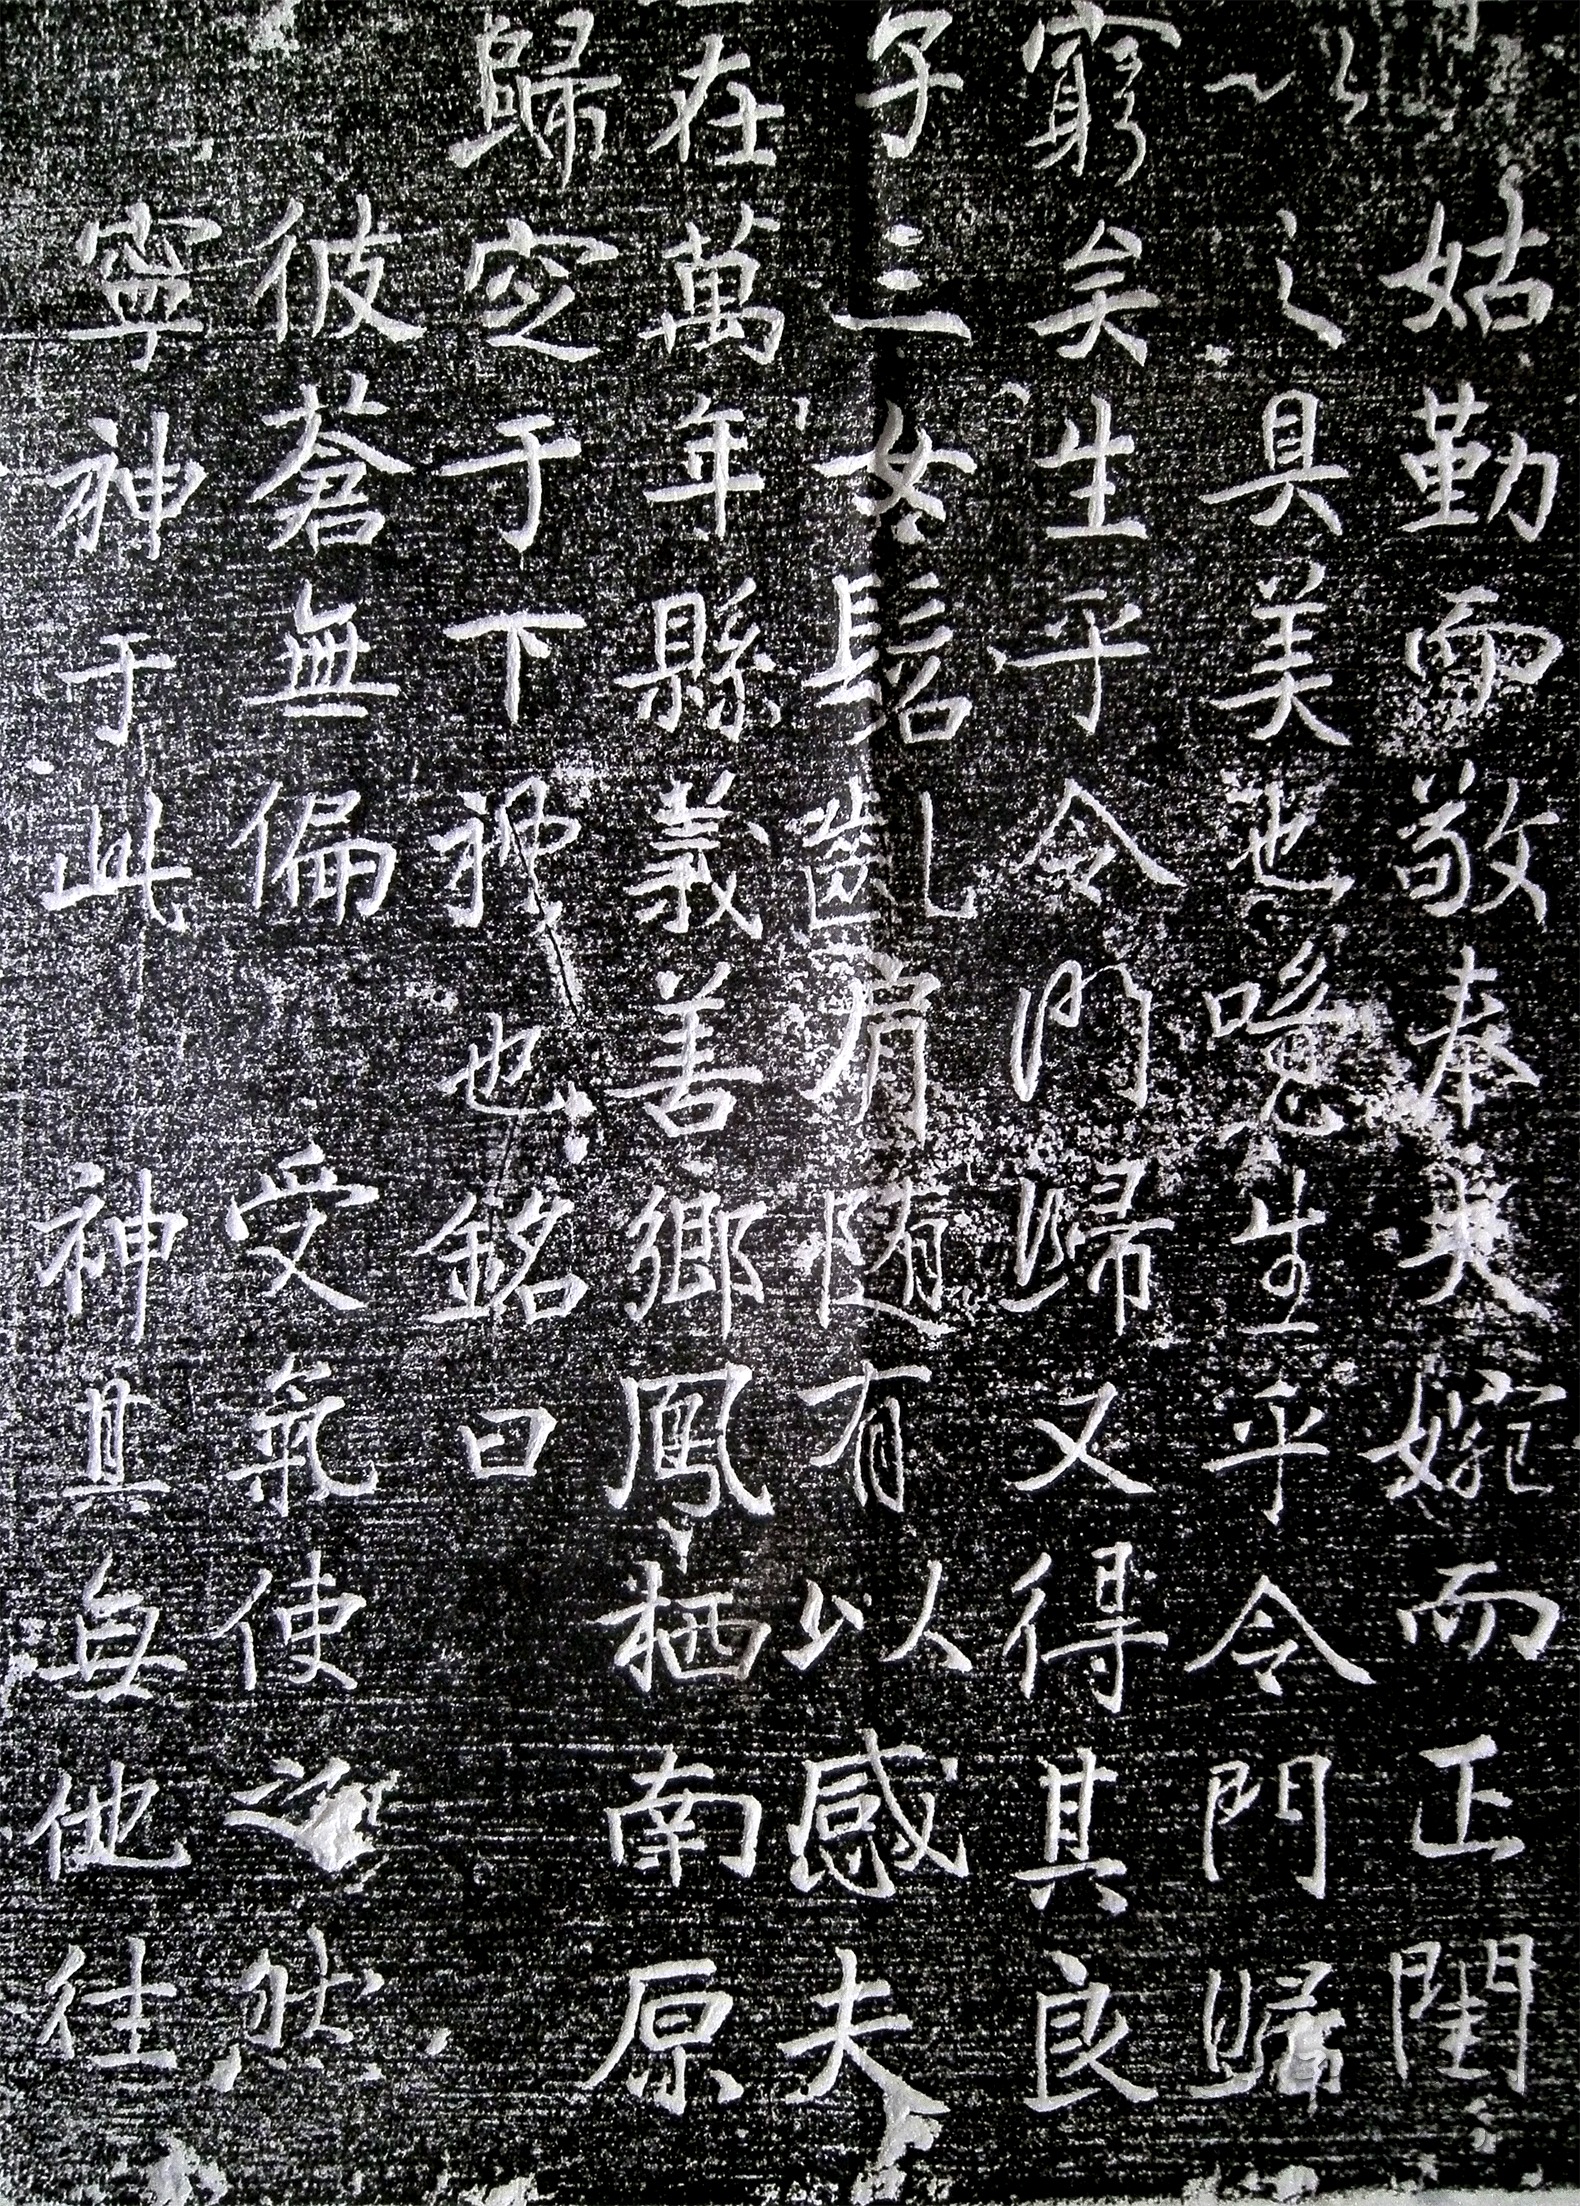 姑勤而敬奉夫婉而正閨
之具美也噫生乎令門歸
窮矣生乎令門歸又得其良
子三女髫齓肩随有以感夫
在萬年縣義善鄉鳳栖南原
歸空于下神也銘曰
彼蒼無偏受氣使之然
寧神于此神其無他往